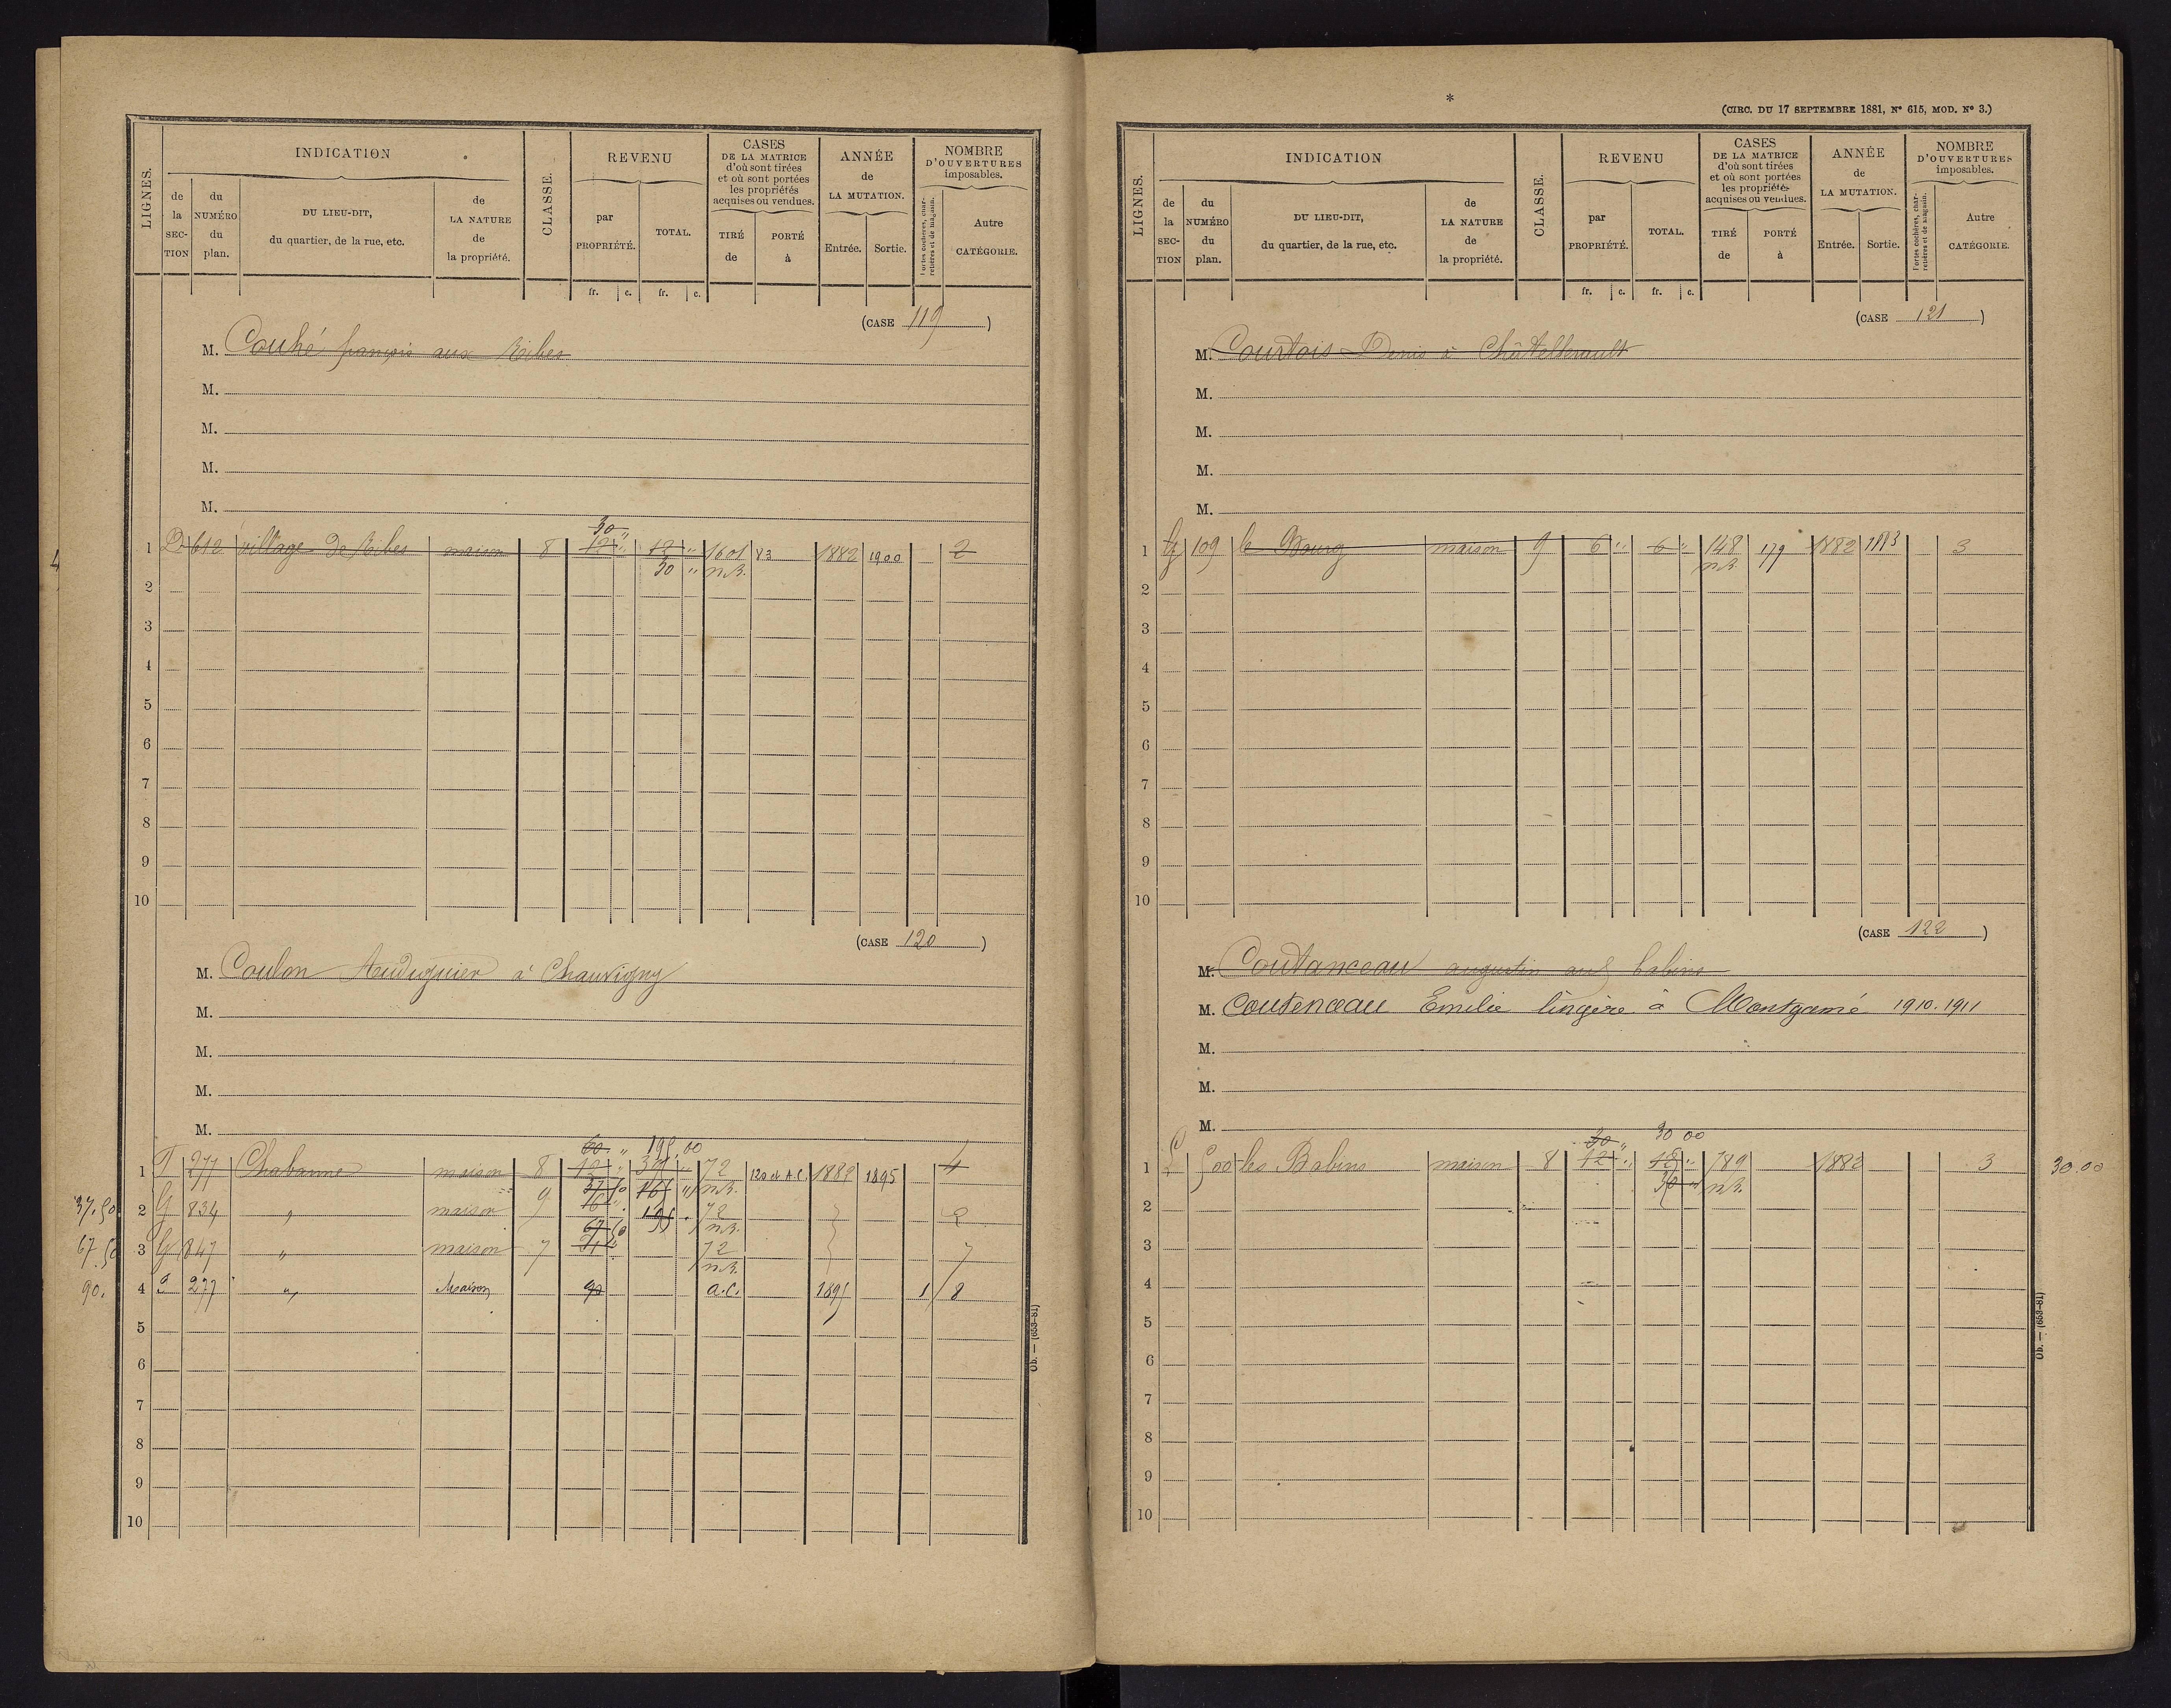 LIGNES.
INDICATION
de la SECTION
du NUMÉRO du plan.
DU LIEU-DIT, du quartier, de la rue, etc.
de LA NATURE de la propriété.
CLASSE.
REVENU
par PROPRIÉTÉ.
TOTAL.
CASES DE LA MATRICE d'où sont tirées et où sont portées les propriétés acquises ou vendues.
TIRÉ de
PORTÉ à
ANNÉE de LA MUTATION.
Entrée. Sortie.
NOMBRE D'OUVERTURES imposables.
Portes cochères, charretières et de magasin.
Autre CATÉGORIE.
fr. c. fr. c.
(CASE 119)
M. Couhé françois aux Ribes
M.
M.
M.
M.
30
1 D 612 village de Ribes maison 8 12 " 12 " 1601 73 1882 1900 2
30 " n.R.
2
3
4
5
6
7
8
9
10
(CASE 120)
M. Coulon Auduguier à Chauvigny
M.
M.
M.
M.
60 " 195.00
1 277 Chabanne maison 8 12 " 39 " 72 120 et A.C. 1882 1895 4
37 50 165 " n.R.
37.50 2 G 834 " maison 9 16 " 195 " 72 2
67 50 n.R.
67.50 3 G 847 " maison 7 72 7
n.R.
90. 4 277 " Maison 90 a.C. 1895 1 8
5
6
7
8
9
10
Ob. — (653-81)
*
(CIRC. DU 17 SEPTEMBRE 1881, N° 615, MOD. N° 3.)
LIGNES.
INDICATION
de la SECTION
du NUMÉRO du plan.
DU LIEU-DIT, du quartier, de la rue, etc.
de LA NATURE de la propriété.
CLASSE.
REVENU
par PROPRIÉTÉ.
TOTAL.
CASES DE LA MATRICE d'où sont tirées et où sont portées les propriétés acquises ou vendues.
TIRÉ de
PORTÉ à
ANNÉE de LA MUTATION.
Entrée. Sortie.
NOMBRE D'OUVERTURES imposables.
Portes cochères, charretières et de magasin.
Autre CATÉGORIE.
fr. c. fr. c.
(CASE 121)
M. Courtois Denis à Châtellerault
M.
M.
M.
M.
1 G 109 le Bourg maison 9 6 " 6 " 148 179 1882 1883 3
n.R.
2
3
4
5
6
7
8
9
10
(CASE 122)
M. Coutanceau augustin aux babins
M. Coutenceau Emilie lingère à Montgamé 1910.1911
M.
M.
M.
30 " 30 00
1 500 les Babins maison 8 12 " 12 " 789 1882 3 30.00
30 " n.R.
2
3
4
5
6
7
8
9
10
Ob. — (653-81)